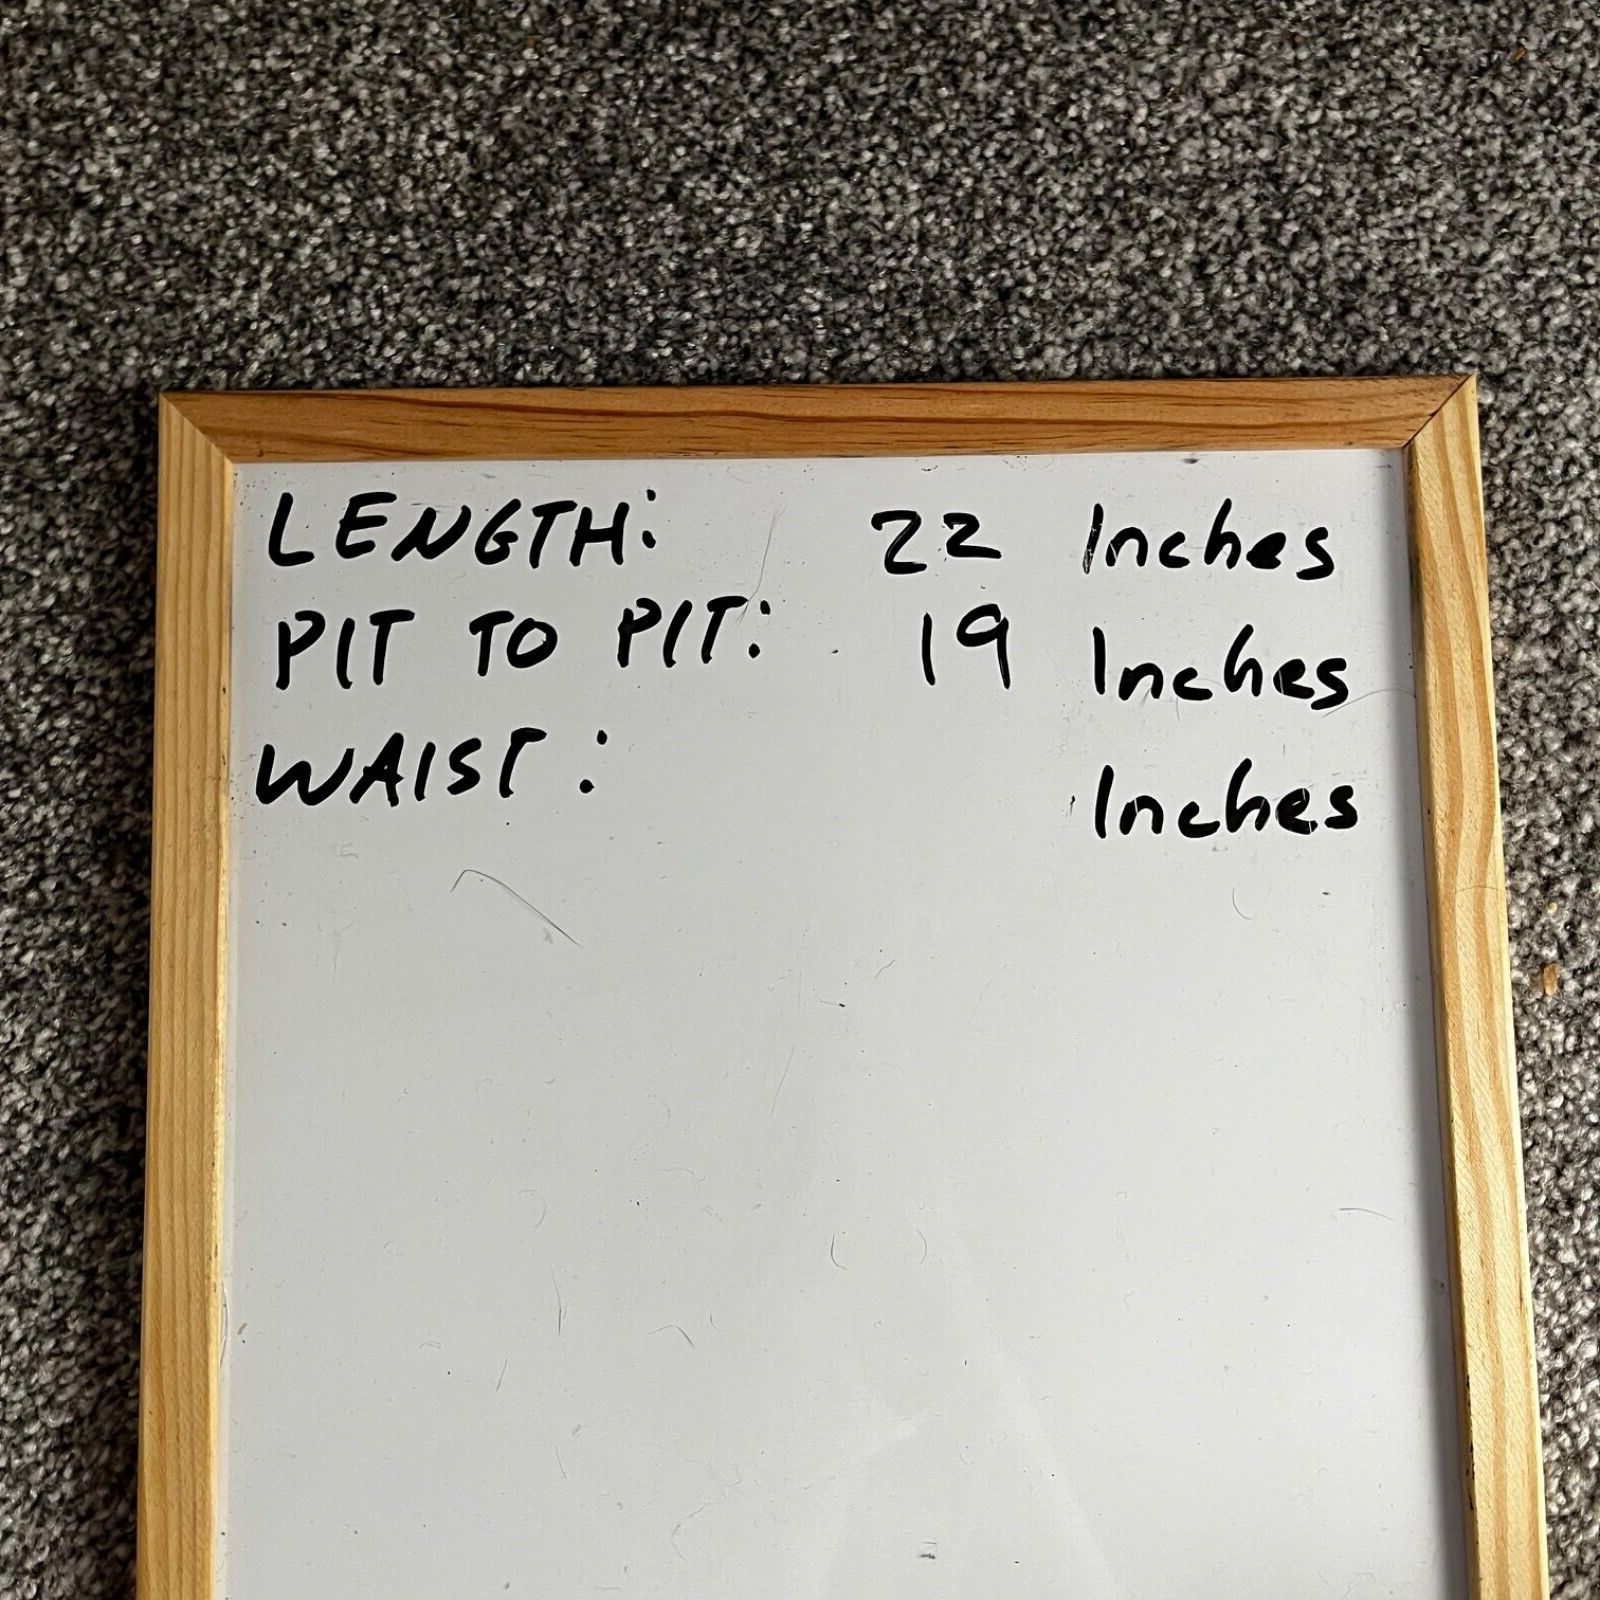 LENGTH: 22 Inches
PIT TO PIT: 19 Inches
WAIST: Inches